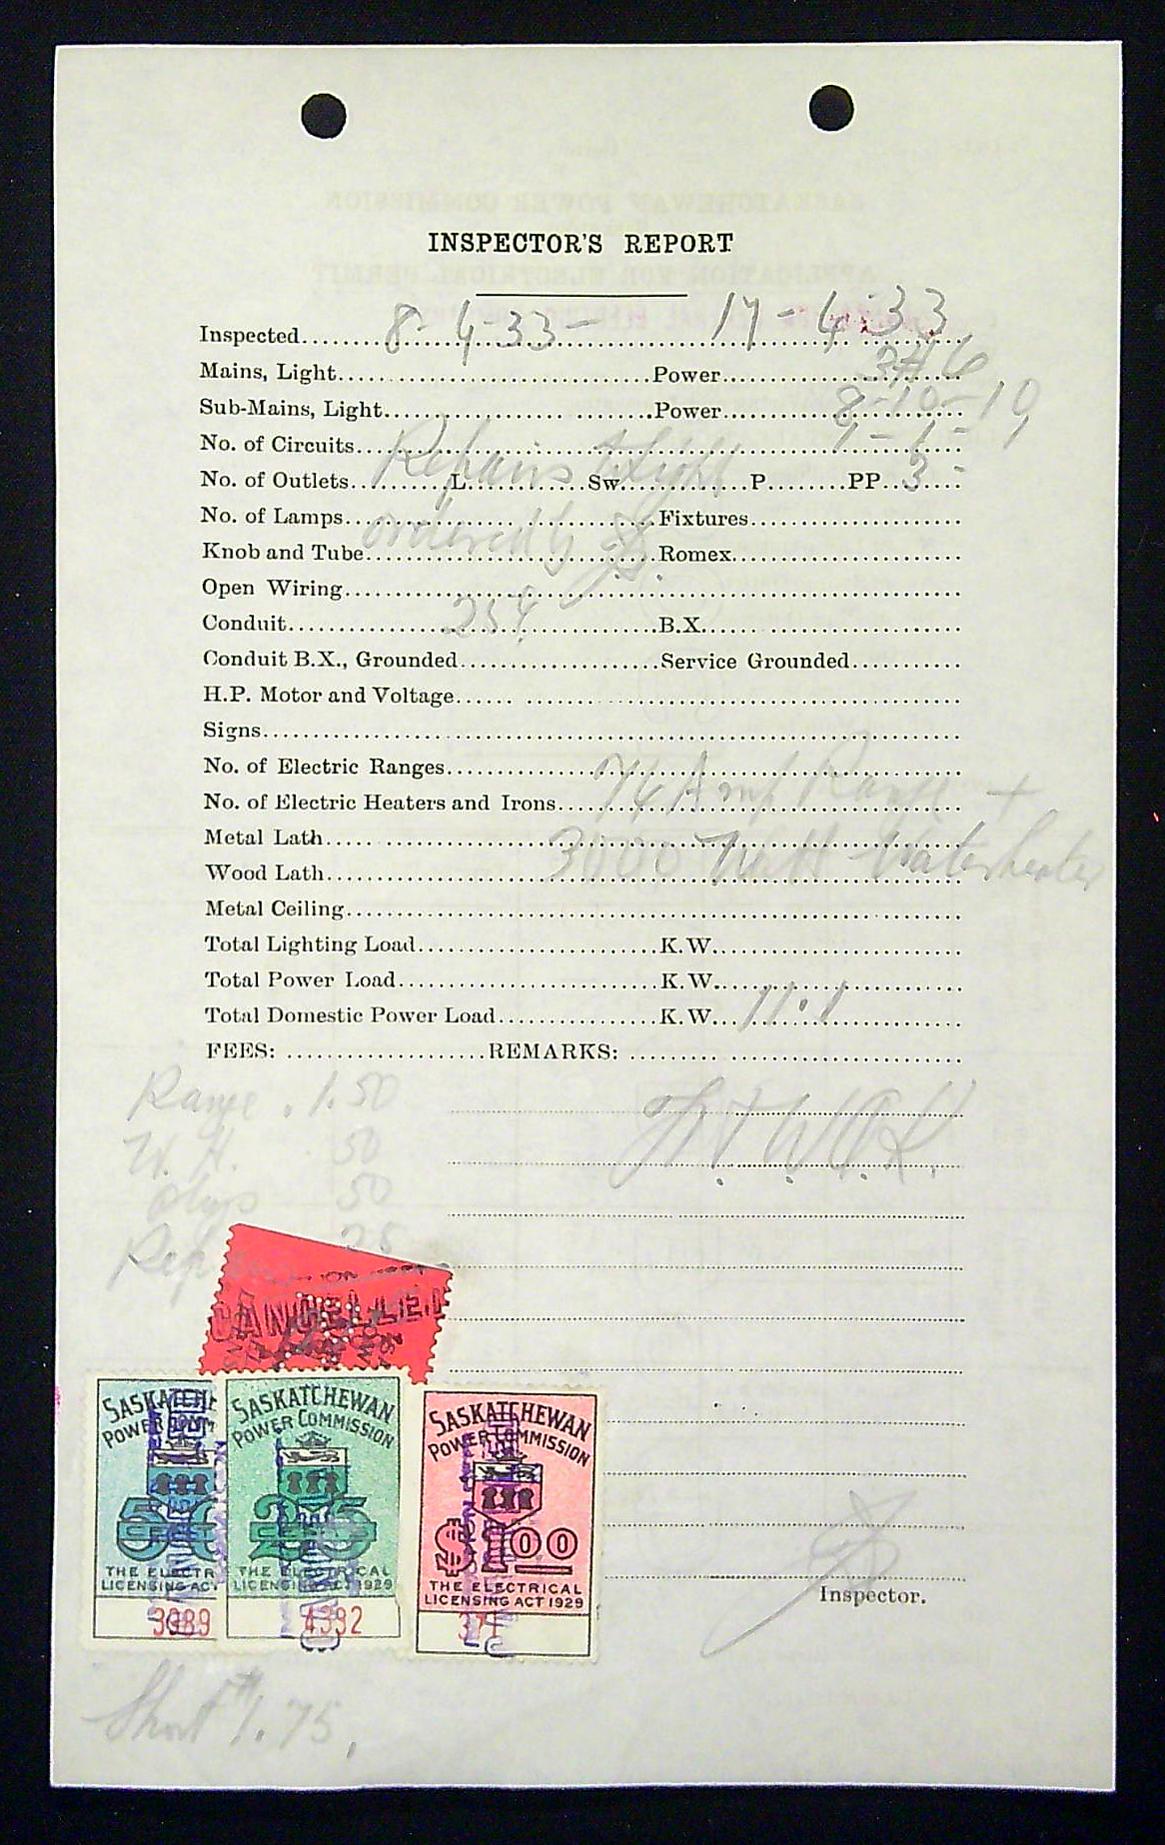 INSPECTOR'S REPORT
Inspected 8-4-33- 17-4-33
Mains, Light Power 3#6
Sub-Mains, Light Power 8-10-10
No. of Circuits 1-1-
No. of Outlets L Sw. P PP 3-
Repairs to Light
No. of Lamps Fixtures
ordered by
Knob and Tube Romex
Open Wiring
Conduit 254 B.X.
Conduit B.X., Grounded Service Grounded
H.P. Motor and Voltage
Signs
No. of Electric Ranges
No. of Electric Heaters and Irons 74 Amp Range +
Metal Lath
3000 Watt Waterheater
Wood Lath
Metal Ceiling
Total Lighting Load K.W.
Total Power Load K.W.
Total Domestic Power Load K.W. 11.1
FEES: REMARKS:
Range 1.50
W. H. 50
50
Rep 25
CANCELLED
SASKATCHE
POWER COMM
5
THE ELECTR
LICENSING AC
3989
SASKATCHEWAN
POWER COMMISSION
25
THE ELECTRICAL
LICENSING ACT 1929
4392
SASKATCHEWAN
POWER COMMISSION
$1.00
THE ELECTRICAL
LICENSING ACT 1929
37
Inspector.
Short $1.75.